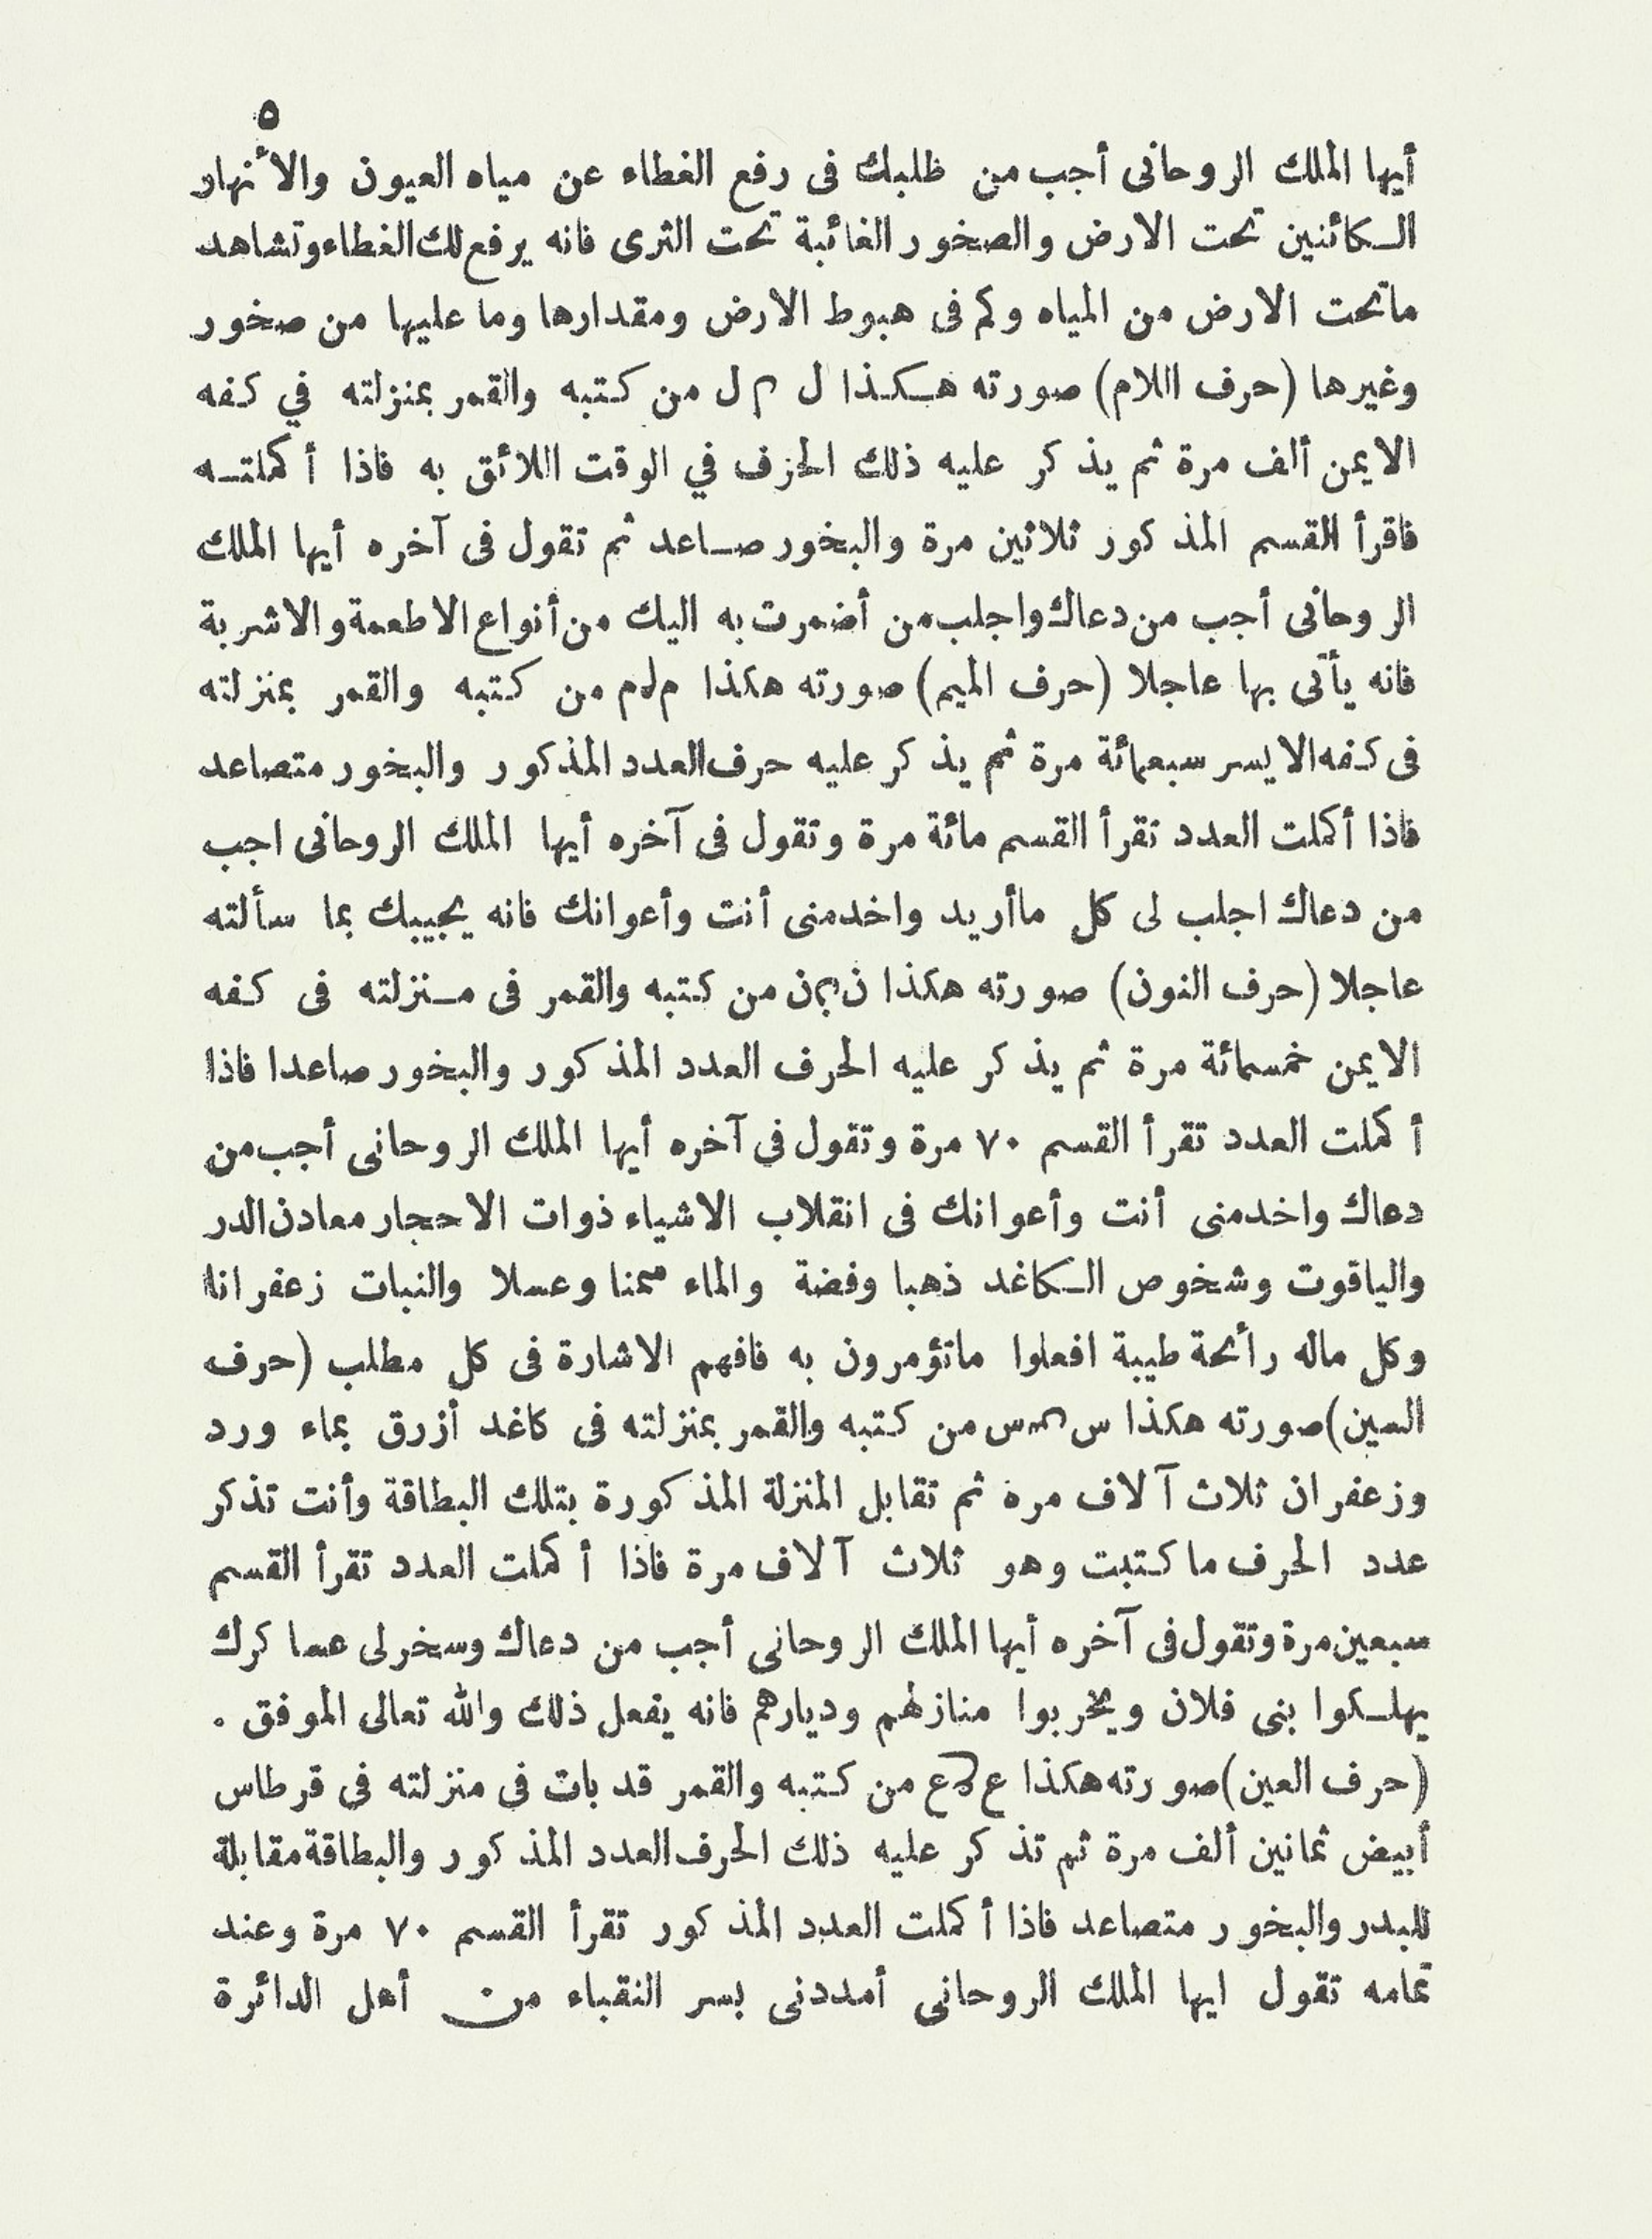 ٥
أيها الملك الروحانى أجب من ظلبك فى رفع الغطاء عن مياه العيون والأنهار
الكائنين تحت الارض والصخور الغائبة تحت الثرى فانه يرفع لك الغطاء وتشاهد
ماتحت الارض من المياه وكم فى هبوط الارض ومقدارها وما عليها من صخور
وغيرها (حرف اللام) صورته هكذا ل ل من كتبه والقمر بمنزلته في كفه
الايمن ألف مرة ثم يذكر عليه ذلك الحزف في الوقت اللائق به فاذا أكملته
فاقرأ القسم المذكور ثلاثين مرة والبخور صاعد ثم تقول فى آخره أيها الملك
الروحانى أجب من دعاك واجلب من أضمرت به اليك من أنواع الاطعمة والاشربة
فانه يأتى بها عاجلا (حرف الميم) صورته هكذا م م من كتبه والقمر بمنزلته
فى كفه الايسر سبعمائة مرة ثم يذكر عليه حرف العدد المذكور والبخور متصاعد
فاذا أكملت العدد تقرأ القسم مائة مرة وتقول فى آخره أيها الملك الروحانى اجب
من دعاك اجلب لى كل ماأريد واخدمنى أنت وأعوانك فانه يجيبك بما سألته
عاجلا (حرف النون) صورته هكذا ن ن من كتبه والقمر فى منزلته فى كفه
الايمن خمسمائة مرة ثم يذكر عليه الحرف العدد المذكور والبخور صاعدا فاذا
أكملت العدد تقرأ القسم ٧٠ مرة وتقول في آخره أيها الملك الروحانى أجب من
دعاك واخدمنى أنت وأعوانك فى انقلاب الاشياء ذوات الاحجار معادن الدر
والياقوت وشخوص الكاغد ذهبا وفضة والماء سمنا وعسلا والنبات زعفرانا
وكل ماله رأئحة طيبة افعلوا ماتؤمرون به فافهم الاشارة فى كل مطلب (حرف
السين) صورته هكذا س س من كتبه والقمر بمنزلته فى كاغد أزرق بماء ورد
وزعفران ثلاث آلاف مرة ثم تقابل المنزلة المذكورة بتلك البطاقة وأنت تذكر
عدد الحرف ما كتبت وهو ثلاث آلاف مرة فاذا أكملت العدد تقرأ القسم
سبعين مرة وتقول فى آخره أيها الملك الروحانى أجب من دعاك وسخر لى عساكرك
يهلكوا بنى فلان ويخربوا منازلهم وديارهم فانه يفعل ذلك والله تعالى الموفق .
(حرف العين) صورته هكذا ع ع من كتبه والقمر قد بات فى منزلته فى قرطاس
أبيض ثمانين ألف مرة ثم تذكر عليه ذلك الحرف العدد المذكور والبطاقة مقابلة
للبدر والبخور متصاعد فاذا أكملت العدد المذكور تقرأ القسم ٧٠ مرة وعند
تمامه تقول ايها الملك الروحانى أمددنى بسر النقباء من أهل الدائرة